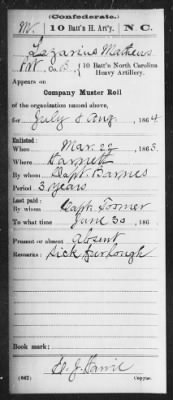 (Confederate.)
M. 10 Batt'n H. Art'y. N. C.
Lazarius Mathews
Pvt, Co. B, 10 Batt'n North Carolina
Heavy Artillery.
Appears on
Company Muster Roll
of the organization named above,
for July & Aug, 1864
Enlisted:
When Mar. 29, 1863.
Where Harnett
By whom Capt. Barnes
Period 3 years
Last paid:
By whom Capt. Toomer
To what time June 30, 186
Present or absent Absent
Remarks: Sick furlough
Book mark:
(642) Copyist.